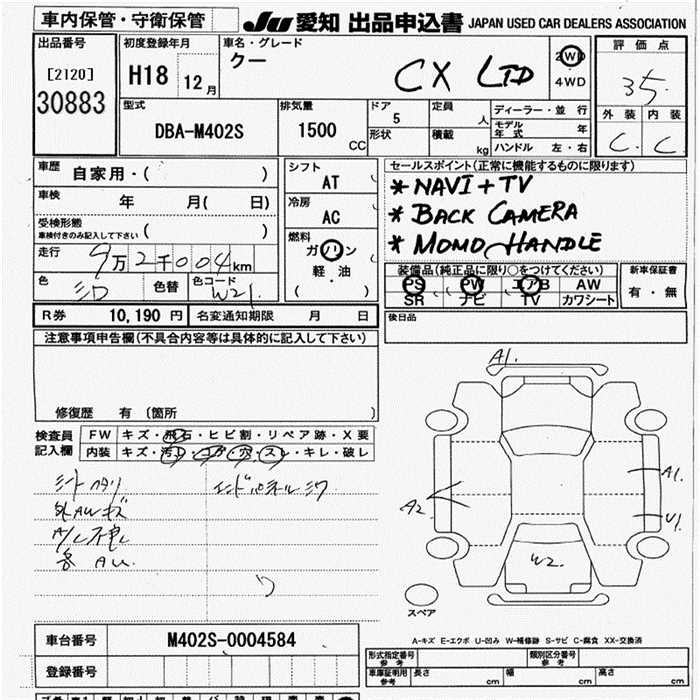 車内保管・守衛保管
JU 愛知 出品申込書 JAPAN USED CAR DEALERS ASSOCIATION
出品番号 初度登録年月 車名・グレード 評価点
[2120] H18 12月 クー CX LTD 2WD 4WD 3.5
30883
型式 排気量 ドア 定員 ディーラー・並行 外装 内装
DBA-M402S 1500 CC 5 人 モデル年式 年 C. C.
形状 積載 kg ハンドル 左・右
車歴 自家用・( ) シフト AT セールスポイント(正常に機能するものに限ります)
車検 年 月( 日) 冷房 AC * NAVI + TV
受検形態 車検付きのみ記入して下さい ( ) * BACK CAMERA
走行 9万2千004km 燃料 ガソリン * MOMO HANDLE
軽・油
( )
色 色替 色コード W21 装備品(純正品に限り○をつけてください) 新車保証書
PS PW エアB AW 有・無
SR ナビ TV カワシート
R券 10,190円 名変通知期限 月 日 後日品
注意事項申告欄(不具合内容等は具体的に記入して下さい)
修復歴 有 (箇所 )
検査員記入欄 FW キズ・飛石・ヒビ割・リペア跡・X要
内装 キズ・汚レ・コゲ・穴・スレ・キレ・破レ
外AWキズ
A1.
A1.
A2
U1.
W2.
スペア
A-キズ E-エクボ U-凹み W-補修跡 S-サビ C-腐食 XX-交換済
車台番号 M402S-0004584
登録番号
形式指定番号 参考 類別区分番号 参考
車庫証明用 参考 長さ cm 幅 cm 高さ cm